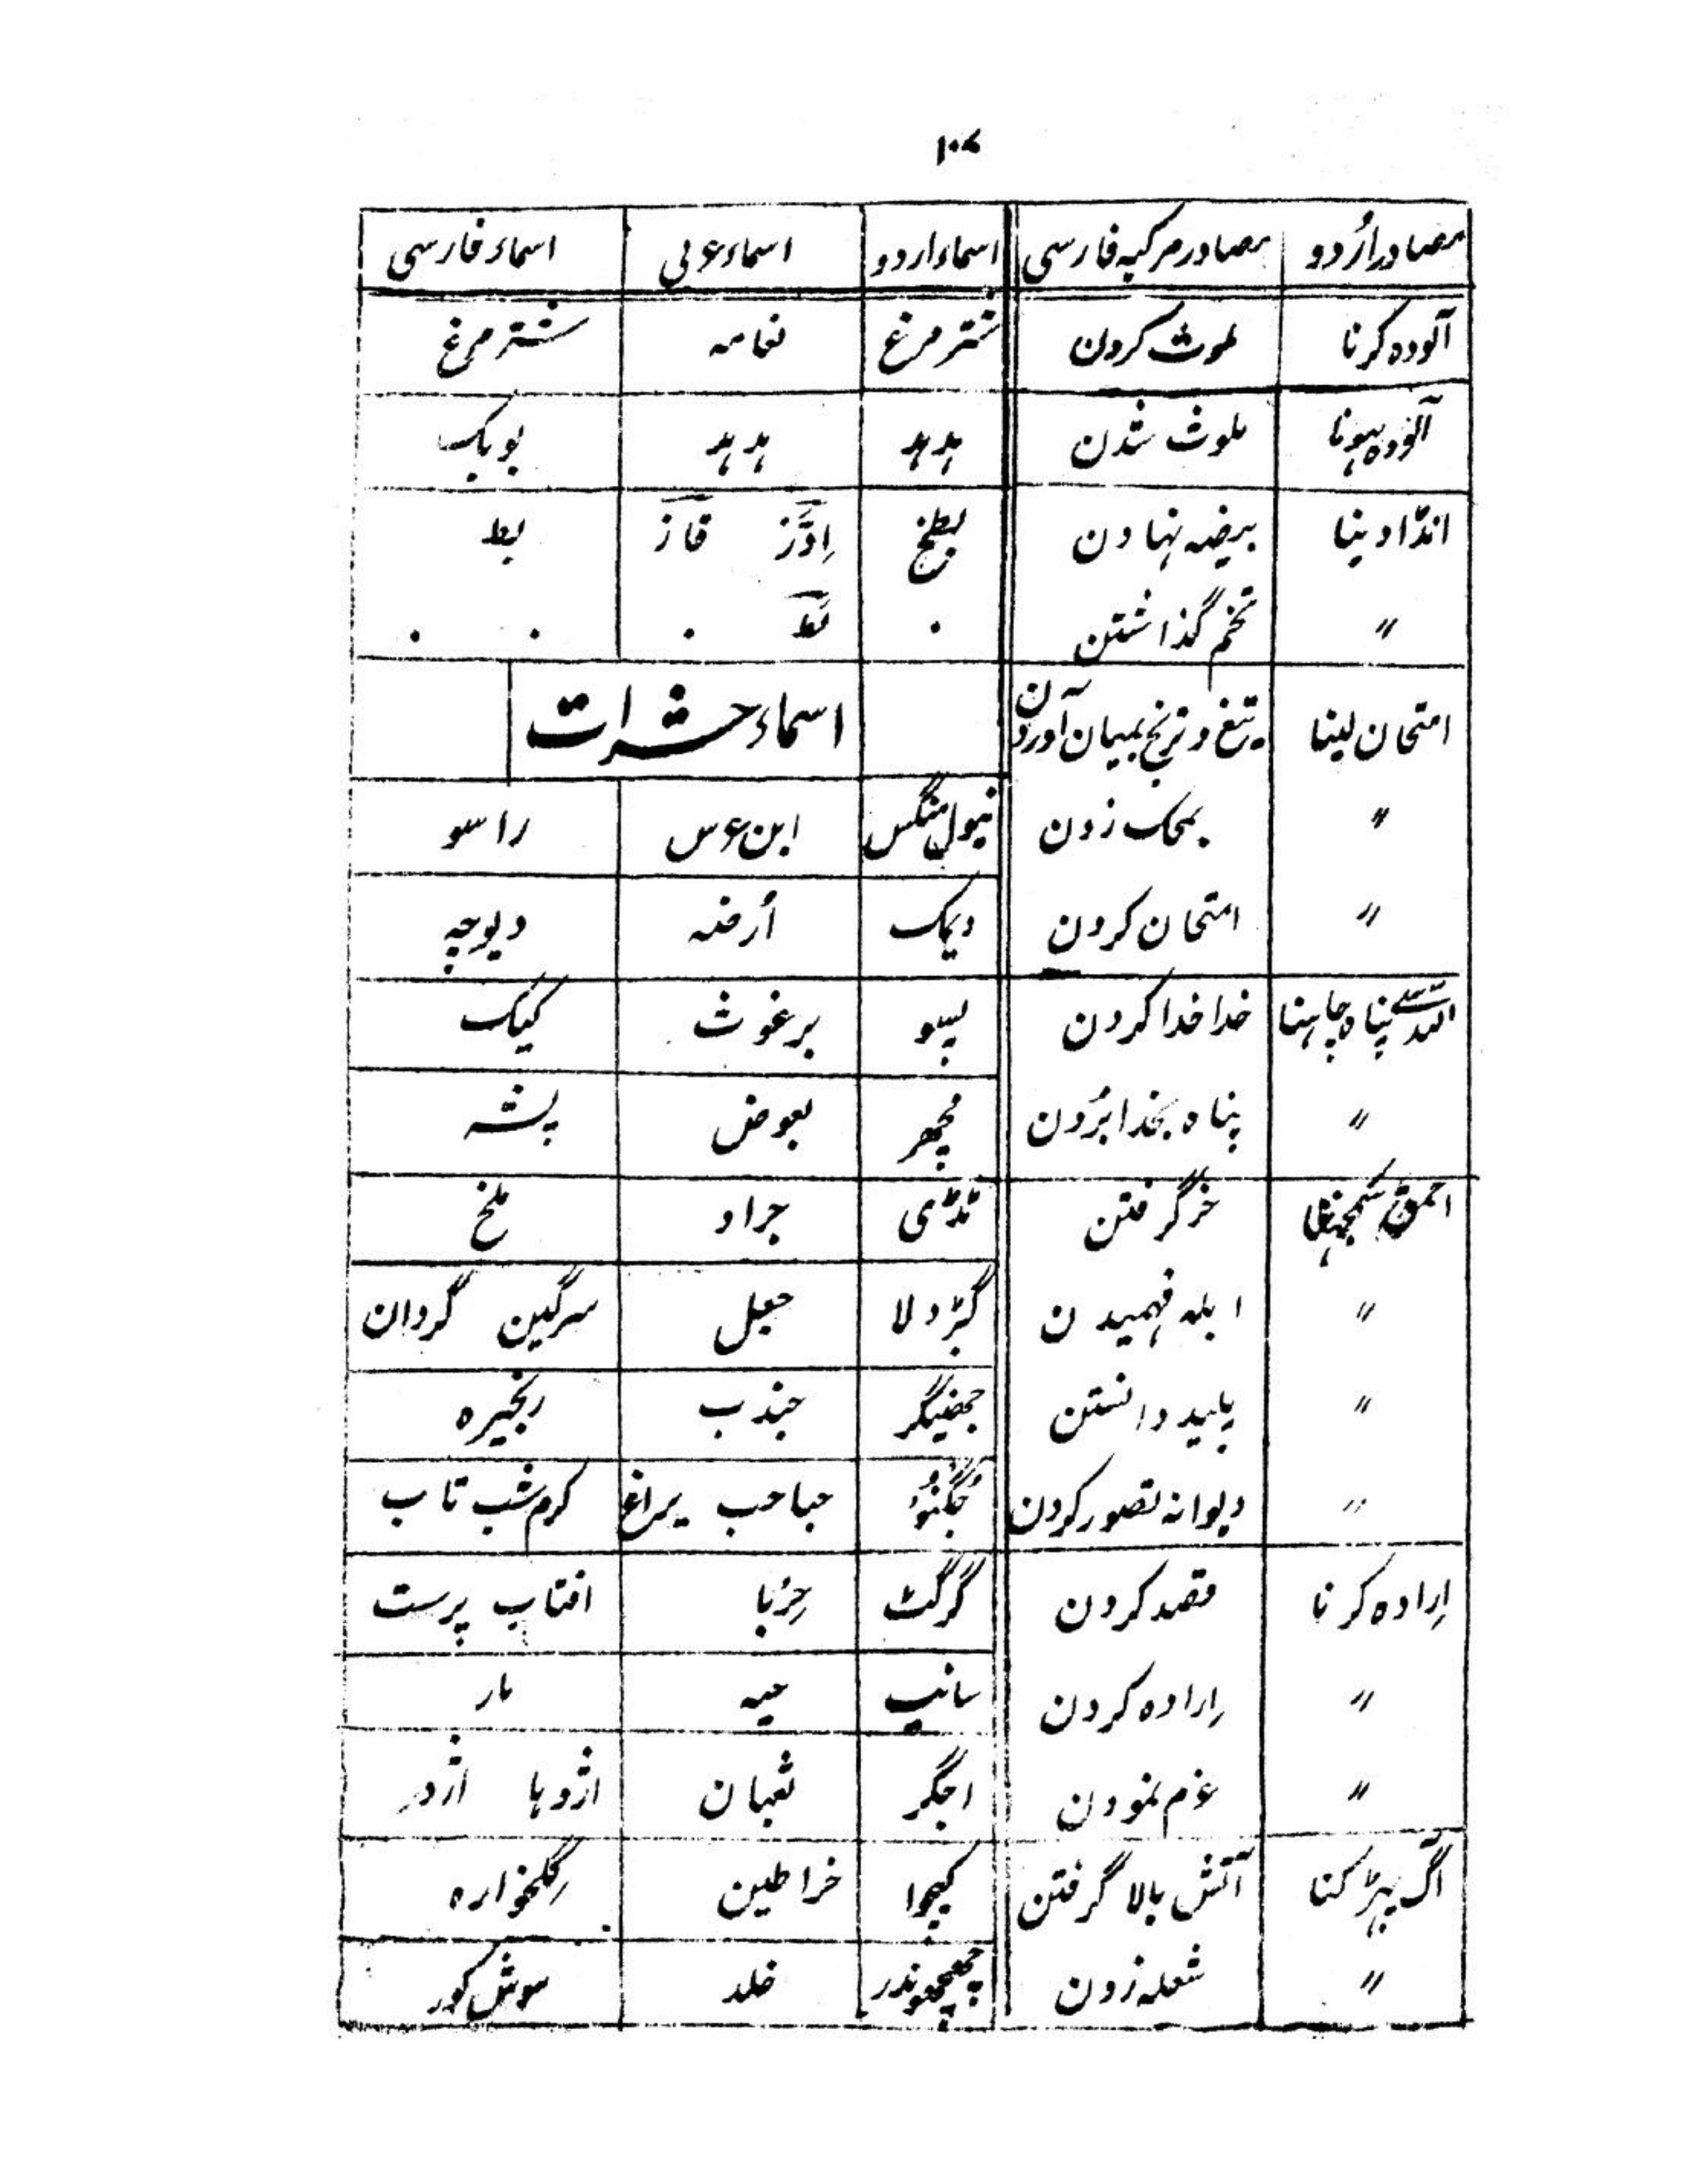 ۱۰۷
مصادر اُردو مصادر مرکبہ فارسی اسماء اردو اسماء عربی اسماء فارسی
آلودہ کرنا لموث کردن شتر مرغ نعامہ شتر مرغ
آلودہ ہونا ملوث شدن ہدہد ہدہد پوپک
انڈا دینا بیضہ نہادن بطخ اِوَّز قاز بط
〃 تخم گذاشتن ۰ بَط ۰ ۰ ۰
امتحان لینا تیغ و ترنج بمیان آوردن اسماء حشرات
〃 بمحک زدن نیول منگس ابن عرس راسو
〃 امتحان کردن دیمک أرضہ دیوچہ
اللہ سے پناہ چاہنا خدا خدا کردن پسو برغوث کیک
〃 پناہ بخدا بُردن مچھر بعوض پشہ
احمق سمجھنا خر گرفتن ٹڈی جراد ملخ
〃 ابلہ فہمیدن گبڑولا جعل سرگین گردان
〃 پلید دانستن جھینگر جندب زنجیرہ
〃 دیوانہ تصور کردن جُگنُو حباحب یراع کرم شب تاب
اِرادہ کرنا قصد کردن گرگٹ حِربا افتاب پرست
〃 اِرادہ کردن سانپ حیہ مار
〃 عزم نمودن اجگر ثعبان اژدہا اژدر
آگ بہڑکنا آتش بالا گرفتن کیچوا خراطین گلخوارہ
〃 شعلہ زدن چھچھوندر خلد موش کور